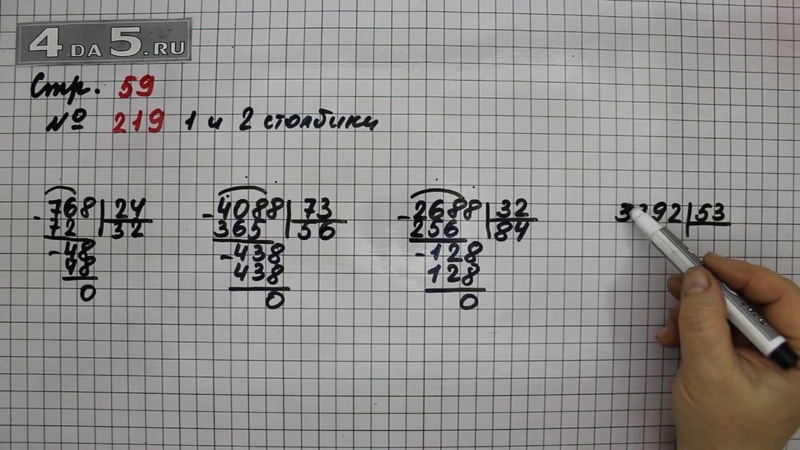 4DA5.RU
Стр. 59
№ 219 1 и 2 столбики
- 768 | 24
72 | 32
- 48
48
0
- 4088 | 73
365 | 56
- 438
438
0
- 2688 | 32
256 | 84
- 128
128
0
3392 | 53